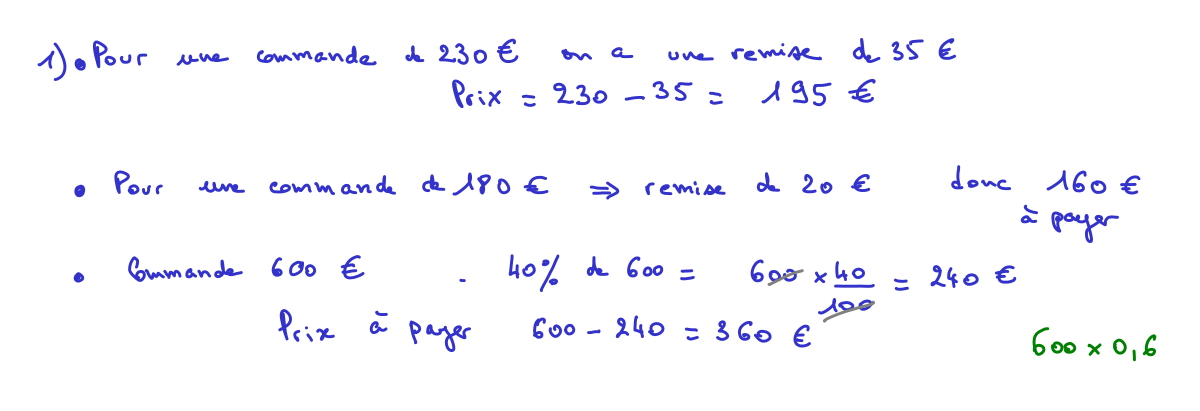 1) • Pour une commande de 230 € on a une remise de 35 €
Prix = 230 - 35 = 195 €
• Pour une commande de 180 € ⇒ remise de 20 € donc 160 €
à payer
• Commande 600 € . 40% de 600 = 600 × 40/100 = 240 €
Prix à payer 600 - 240 = 360 €
600 × 0,6